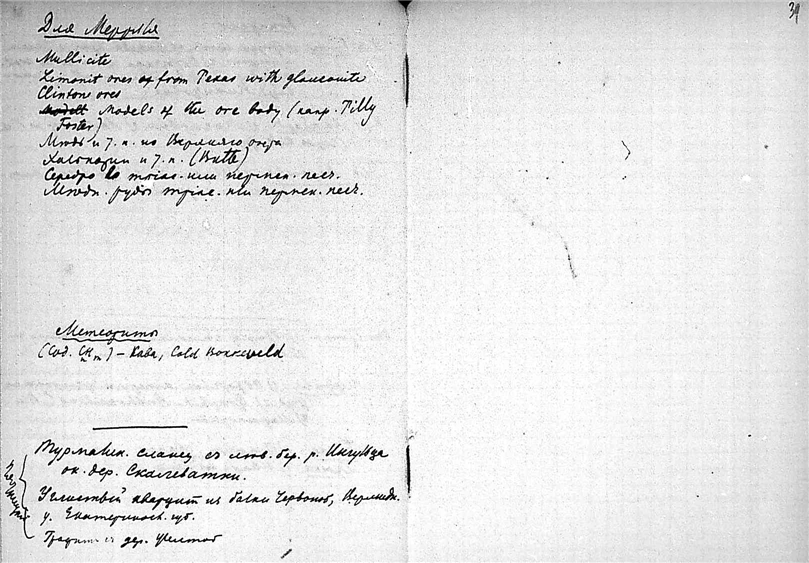 34
Для Меррлля
Mullicite
Limonit ores of from Texas with glauconite
Clinton ores
Models of the ore body (напр. Tilly
Foster)
Мѣдь и т. п. из Верхняго озера
Халькозин и т. п. (Butte)
Серебро в триас. или пермск. песч.
Мѣдн. руды триас. или пермск. песч.
Метеориты
(Сод. CnHm) – Каба, Cold Bokkeveld
Турмалин. сланец съ лѣв. бер. р. Ингульца
ок. дер. Скалеватки.
Углистый кварцит из балки Червоной, Верхнедн.
у. Екатеринос. губ.
Графит с дер.